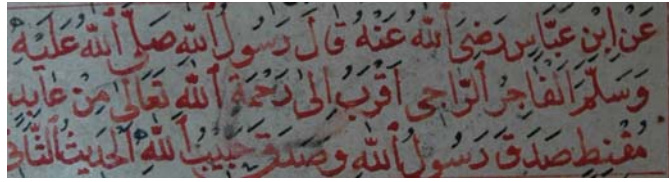 عَنْ اِبْنِ عَبَّاسٍ رَضِىَ اللّٰهُ عَنْهُ قَالَ رَسُولُ اللّٰهِ صَلَّى اللّٰهُ عَلَيْهِ
وَسَلَّمَ الْفَاجِرُ الرَّاجِى اَقْرَبُ اِلٰى رَحْمَةِ اللّٰهِ تَعَالٰى مِنْ عَابِدٍ
مُقْنِطٍ صَدَقَ رَسُولُ اللّٰهِ وَصَدَقَ حَبِيبُ اللّٰهِ الْحَدِيثُ الثَّانِى